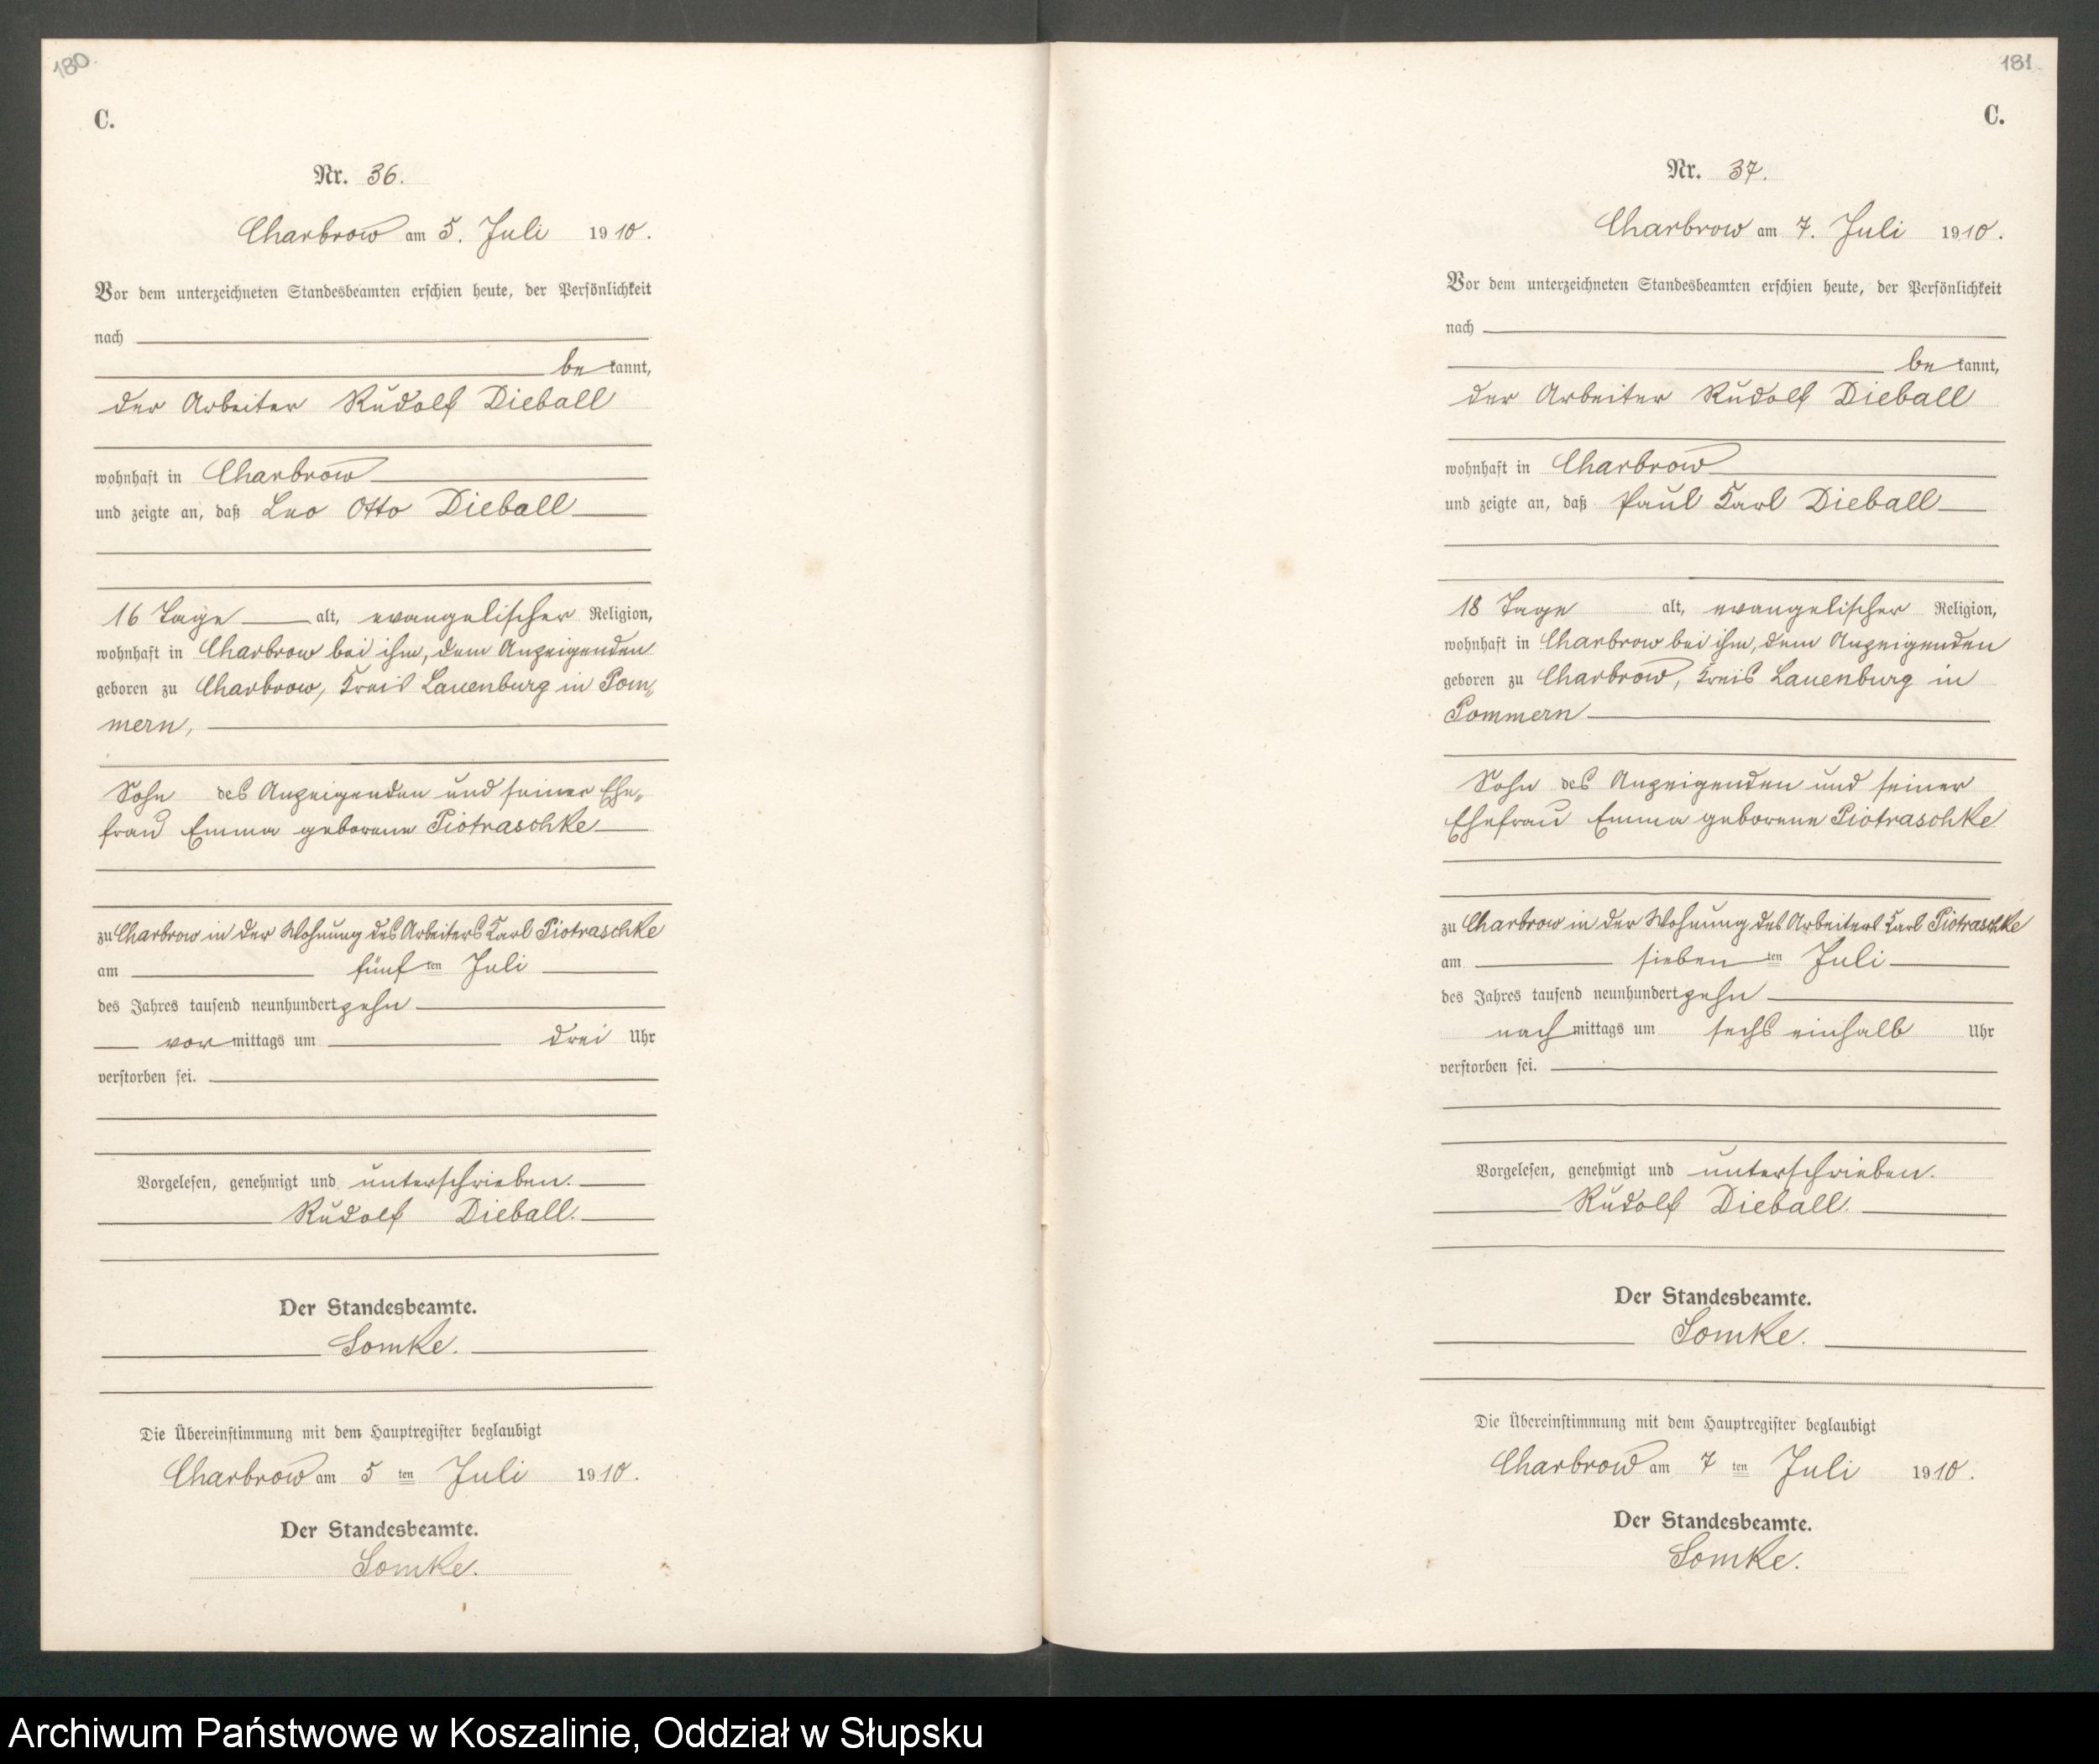 180.
C.
Nr. 36.
Charbrow am 5. Juli 1910.
Vor dem unterzeichneten Standesbeamten erschien heute, der Persönlichkeit
nach
bekannt,
der Arbeiter Rudolf Dieball
wohnhaft in Charbrow
und zeigte an, daß Leo Otto Dieball
16 Tage alt, evangelischer Religion,
wohnhaft in Charbrow bei ihm, dem Anzeigenden
geboren zu Charbrow, Kreis Lauenburg in Pom„
mern,
Sohn des Anzeigenden und seiner Ehe„
frau Emma geborene Piotraschke
zu Charbrow in der Wohnung des Arbeiters Karl Piotraschke
am fünften Juli
des Jahres tausend neunhundertzehn
vormittags um drei Uhr
verstorben sei.
Vorgelesen, genehmigt und unterschrieben.
Rudolf Dieball.
Der Standesbeamte.
Lomke.
Die Übereinstimmung mit dem Hauptregister beglaubigt
Charbrow am 5 ten Juli 1910.
Der Standesbeamte.
Lomke.
181
C.
Nr. 37.
Charbrow am 7. Juli 1910.
Vor dem unterzeichneten Standesbeamten erschien heute, der Persönlichkeit
nach
bekannt,
der Arbeiter Rudolf Dieball
wohnhaft in Charbrow
und zeigte an, daß Paul Karl Dieball
18 Tage alt, evangelischer Religion,
wohnhaft in Charbrow bei ihm, dem Anzeigenden
geboren zu Charbrow, Kreis Lauenburg in
Pommern
Sohn des Anzeigenden und seiner
Ehefrau Emma geborene Piotraschke
zu Charbrow in der Wohnung des Arbeiters Karl Piotraschke
am siebenten Juli
des Jahres tausend neunhundertzehn
nachmittags um sechs einhalb Uhr
verstorben sei.
Vorgelesen, genehmigt und unterschrieben.
Rudolf Dieball.
Der Standesbeamte.
Lomke.
Die Übereinstimmung mit dem Hauptregister beglaubigt
Charbrow am 7 ten Juli 1910.
Der Standesbeamte.
Lomke.
Archiwum Państwowe w Koszalinie, Oddział w Słupsku